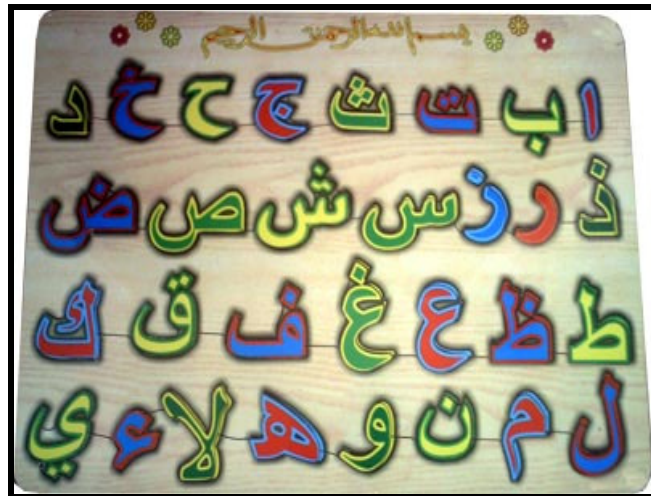 بسم الله الرحمن الرحيم
ا ب ت ث ج ح خ د
ذ ر ز س ش ص ض
ط ظ ع غ ف ق ك
ل م ن و ه لا ء ي